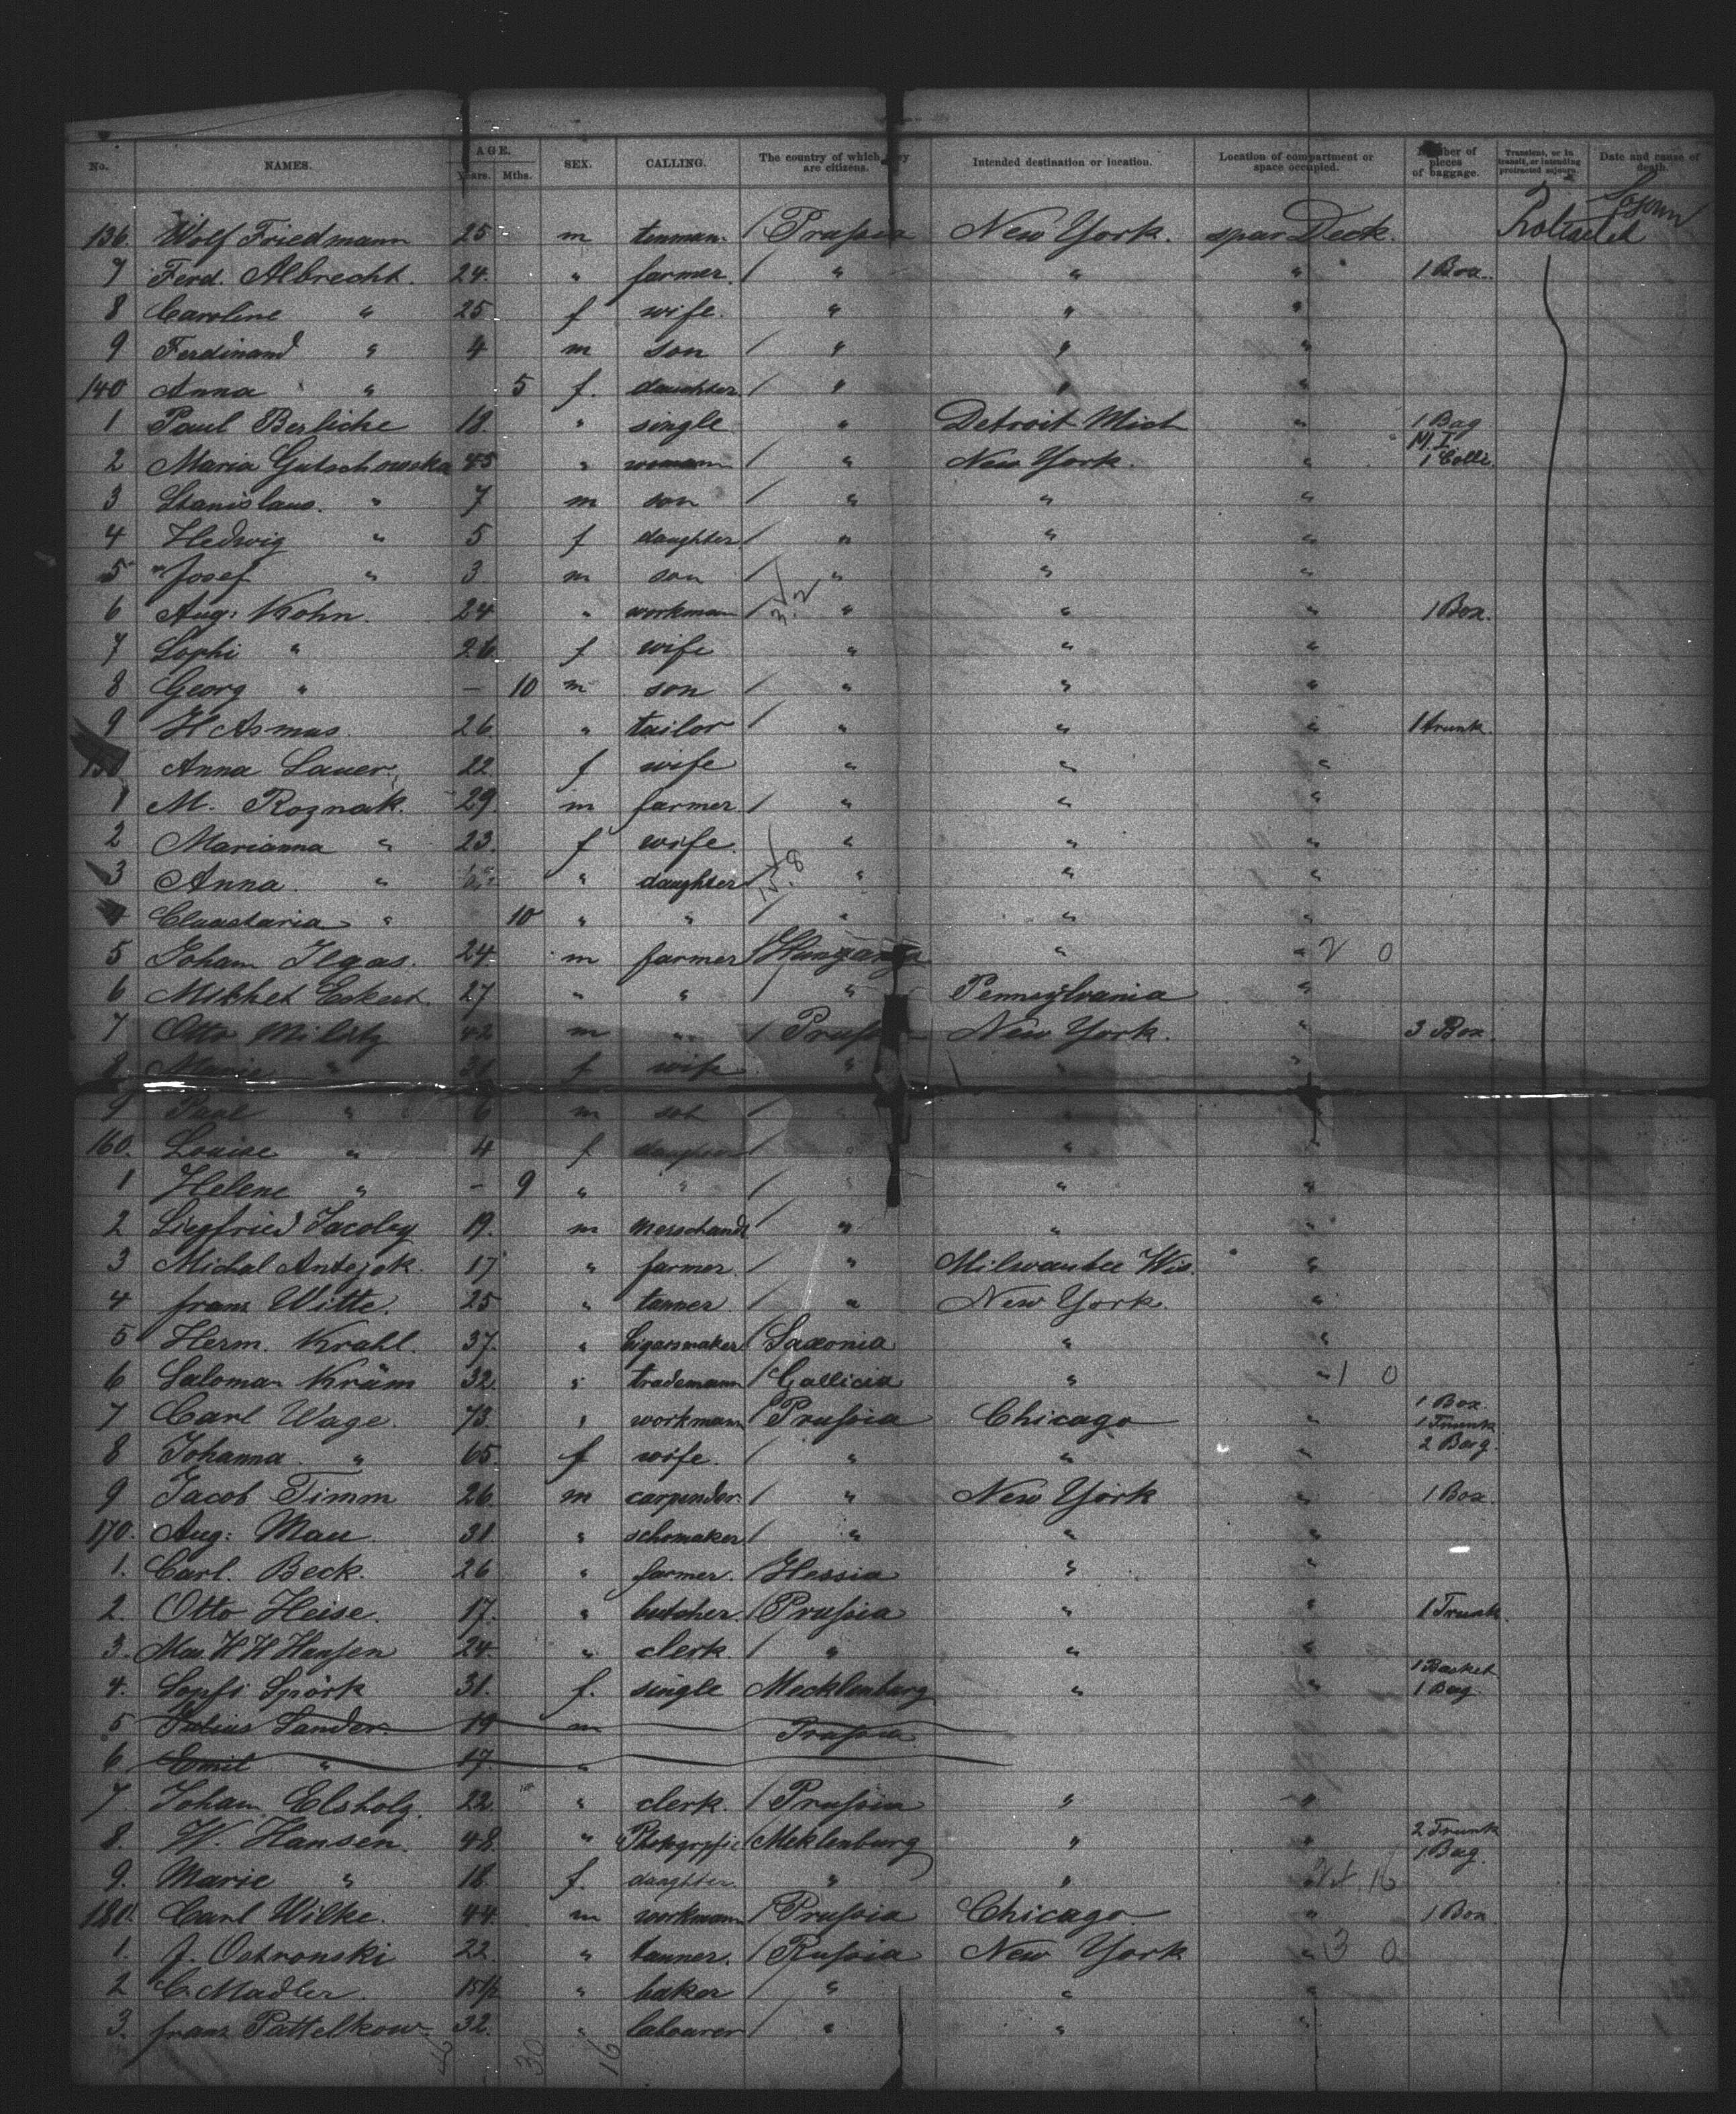 No. NAMES. AGE. Years. Mths. SEX. CALLING. The country of which they are citizens. Intended destination or location. Location of compartment or space occupied. Number of pieces of baggage. Transient, or in transit, or intending protracted sojourn. Date and cause of death.
136. Wolf Friedmann 25 m tinman. / Prussia New York. spar Deck.
7 Ferd. Albrecht. 24. " farmer. / " " " 1 Box.
8 Caroline " 25 f wife. " " "
9 Ferdinand " 4 m son / " " "
140 Anna " 5 f. daughter / " " "
1 Paul Berlicke 18. " single " Detroit Mich " 1 Bag
2 Maria Gutschowska 45 " " New York. " 1 Colli
3 Stanislaus. " 7 m son / " " "
4 Hedwig " 5 f daughter / " " "
5 Josef " 3 m son / " " "
6 Aug: Kohn. 24 " workman / " " " 1 Box.
7 Sophi " 26. f wife " " "
8 Georg " – 10 m son / " " "
9 H Asmus. 26 " tailor / " " " 1 trunk.
150 Anna Lauer. 22 f wife " " "
1 M. Roznak. 29. m farmer. / " " "
2 Marianna " 23. f wife. " " "
3 Anna. " " daughter / " " "
" 10 " " / " " "
5 Joham Ilgas. 24 m farmer / Hungaria " " 2 0
6 Eckert. 27 " " / " Pennsylvania "
7 Otto Militz 42 m " / Prussia New York. " 3 Box.
8 Marie " 31 f wife " " "
9 Paul " 6 m son / " "
160. Louise " 4 f daughter / " " "
1 Helene " – 9 " " / " " "
2 Siegfried Jacoby 19. m Merschandt / " " "
3 Michal Antejak. 17 " farmer. / " Milwaukee Wis. "
4 franz Witte. 25 " tanner. / " New York. "
5 Herm. Krahl. 37. " Cigarsmaker / Saxonia " "
6 Saloman Kräm 32 " trademann / Gallicia " " 1 0
7 Carl Wage. 73. " workmann / Prussia Chicago " 1 Box. 1 Trunk
8 Johanna. " 65. f wife. " " " 2 Bag.
9 Jacob Timm 26. m carpender. / " New York " 1 Box.
170. Aug: Mau. 31. " schomaker / " " "
1. Carl. Beck. 26 " farmer. / Hessia " "
2. Otto Heise. 17. " butcher. / Prussia " " 1 Trunk.
3. H H Hansen 24. " clerk. / " " "
4. Sophi Spörk 31. f. single Mecklenburg " " 1 Basket 1 Bag.
5 Julius Sander. 19 m Prussia
6 Emil " 17. "
7. Joham Elsholz. 22. " clerk. / Prussia " "
8. W. Hansen. 48. " / Meklenburg " " 2 Trunk 1 Bag.
9. Marie " 18. f. daughter. " " "
180. Carl Wilke. 44. m workmann / Prussia Chicago. " 1 Box.
1. J. Ostronski 22. " tanner. / Russia New York " 3 0
2 C. Madler. 18½ " baker / " " "
3. franz Pattelkow. 32. " labourer / " " "
30 16